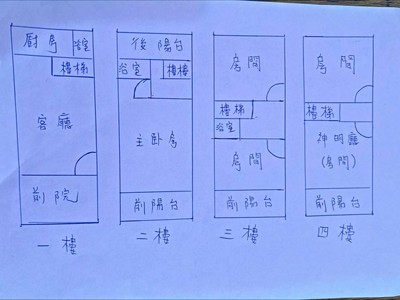 廚房
浴室
樓梯
客廳
前院
一樓
後陽台
浴室
樓樓
主卧房
前陽台
二樓
房間
樓梯
浴室
房間
前陽台
三樓
房間
樓梯
神明廳
(房間)
前陽台
四樓